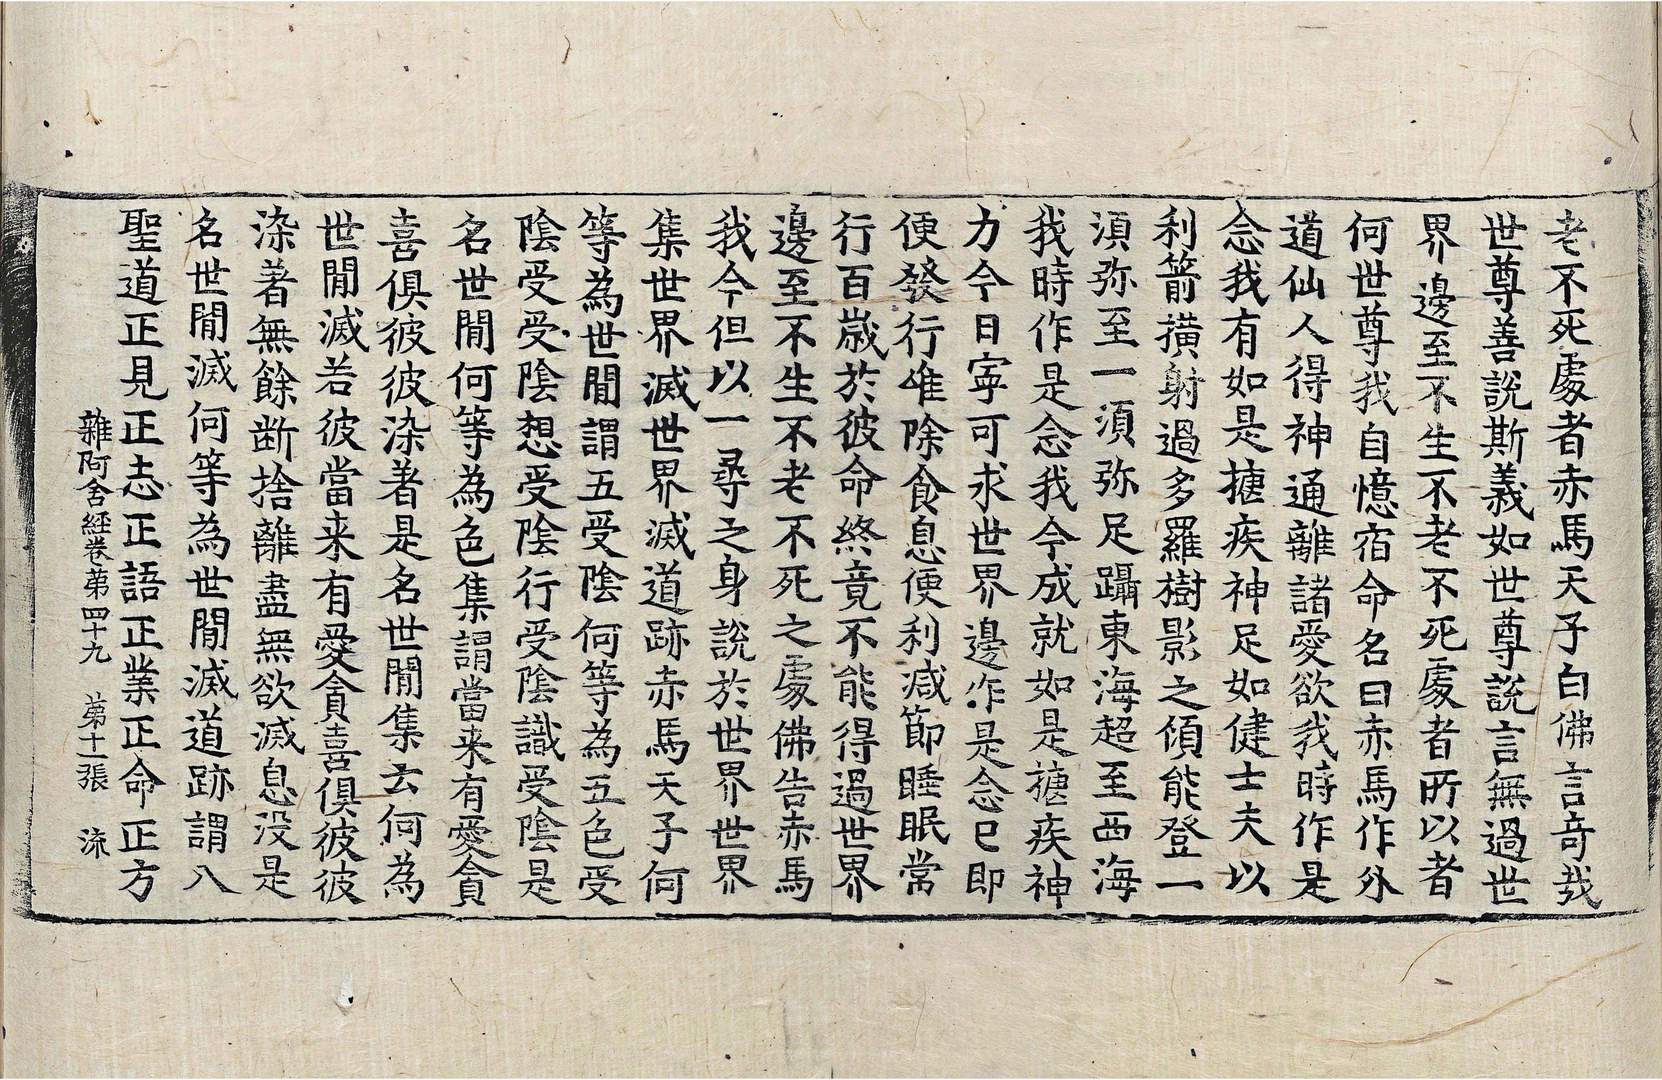 老不死處者赤馬天子白佛言奇哉
世尊善說斯義如世尊說言無過世
界邊至不生不老不死處者所以者
何世尊我自憶宿命名曰赤馬作外
道仙人得神通離諸愛欲我時作是
念我有如是揵疾神足如健士夫以
利箭撗射過多羅樹影之傾能登一
湏弥至一湏弥足躡東海超至西海
我時作是念我今成就如是揵疾神
力今日寧可求世界邊作是念已即
便發行唯除食息便利减節睡眠常
行百歲於彼命終竟不能得過世界
邊至不生不老不死之處佛告赤馬
我今但以一尋之身說於世界世界
集世界滅世界滅道跡赤馬天子何
等為世閒謂五受陰何等為五色受
陰受受陰想受陰行受陰識受陰是
名世閒何等為色集謂當来有愛貪
喜俱彼彼染著是名世閒集云何為
世閒滅若彼當来有愛貪喜俱彼彼
染著無餘断捨離盡無欲滅息没是
名世閒滅何等為世閒滅道跡謂八
聖道正見正志正語正業正命正方
雜阿含經卷第四十九 第十一張 流